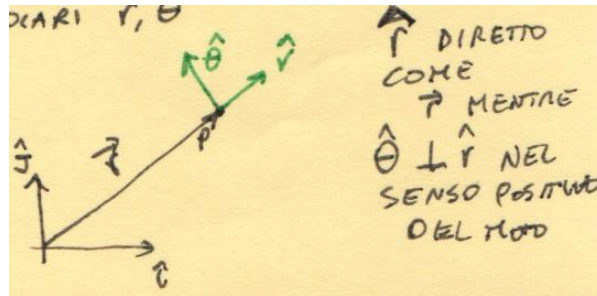 OCARI r̂, θ̂
θ̂ r̂
P
r⃗
ĵ
î
r̂ DIRETTO
COME
r⃗ MENTRE
θ̂ ⊥ r̂ NEL
SENSO POSITIVO
DEL MOTO